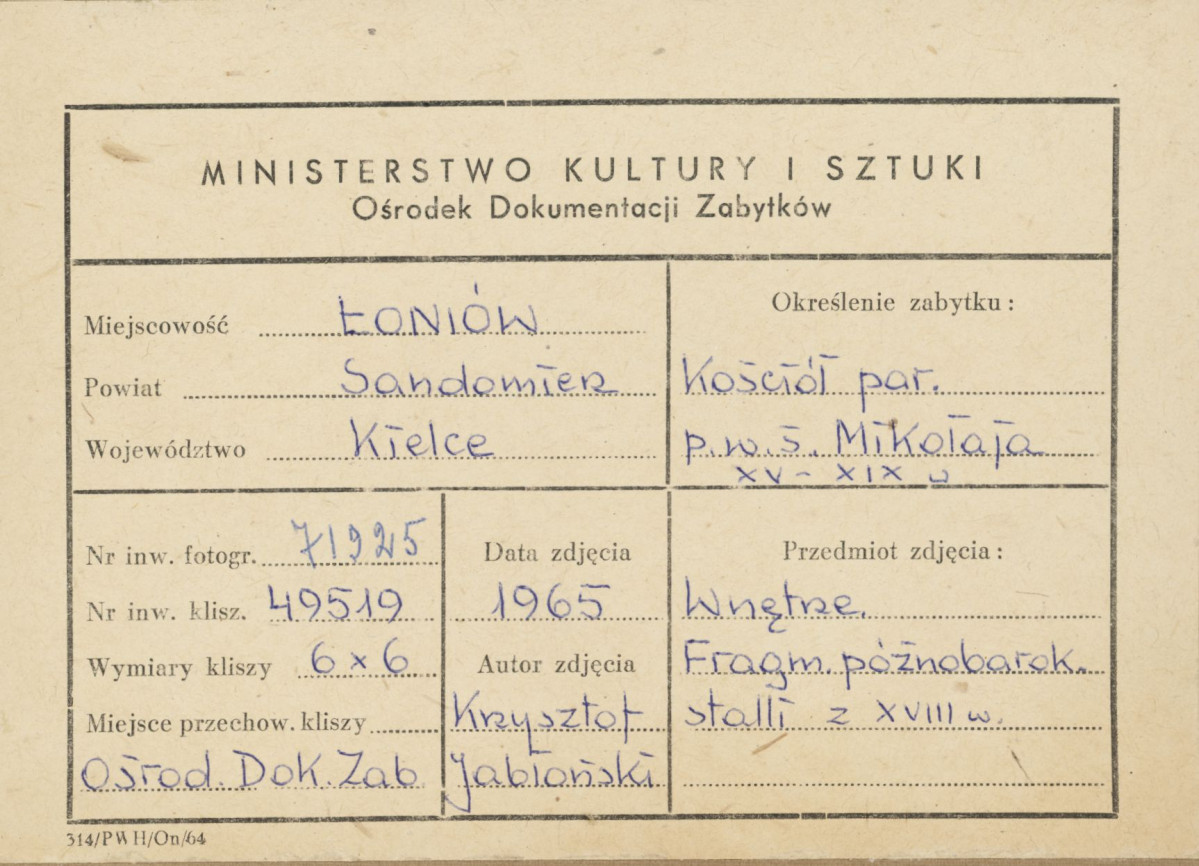 MINISTERSTWO KULTURY I SZTUKI
Ośrodek Dokumentacji Zabytków
Miejscowość ŁONIÓW
Powiat Sandomierz
Województwo Kielce
Określenie zabytku:
Kościół par.
p.w. ś. Mikołaja
XV - XIX w
Nr inw. fotogr. 71925
Nr inw. klisz. 49519
Wymiary kliszy 6 x 6
Miejsce przechow. kliszy
Ośrod. Dok. Zab
Data zdjęcia
1965
Autor zdjęcia
Krzysztof
Jabłoński
Przedmiot zdjęcia:
Wnętrze.
Fragm. późnobarok.
stalli z XVIII w.
314/PWH/On/64